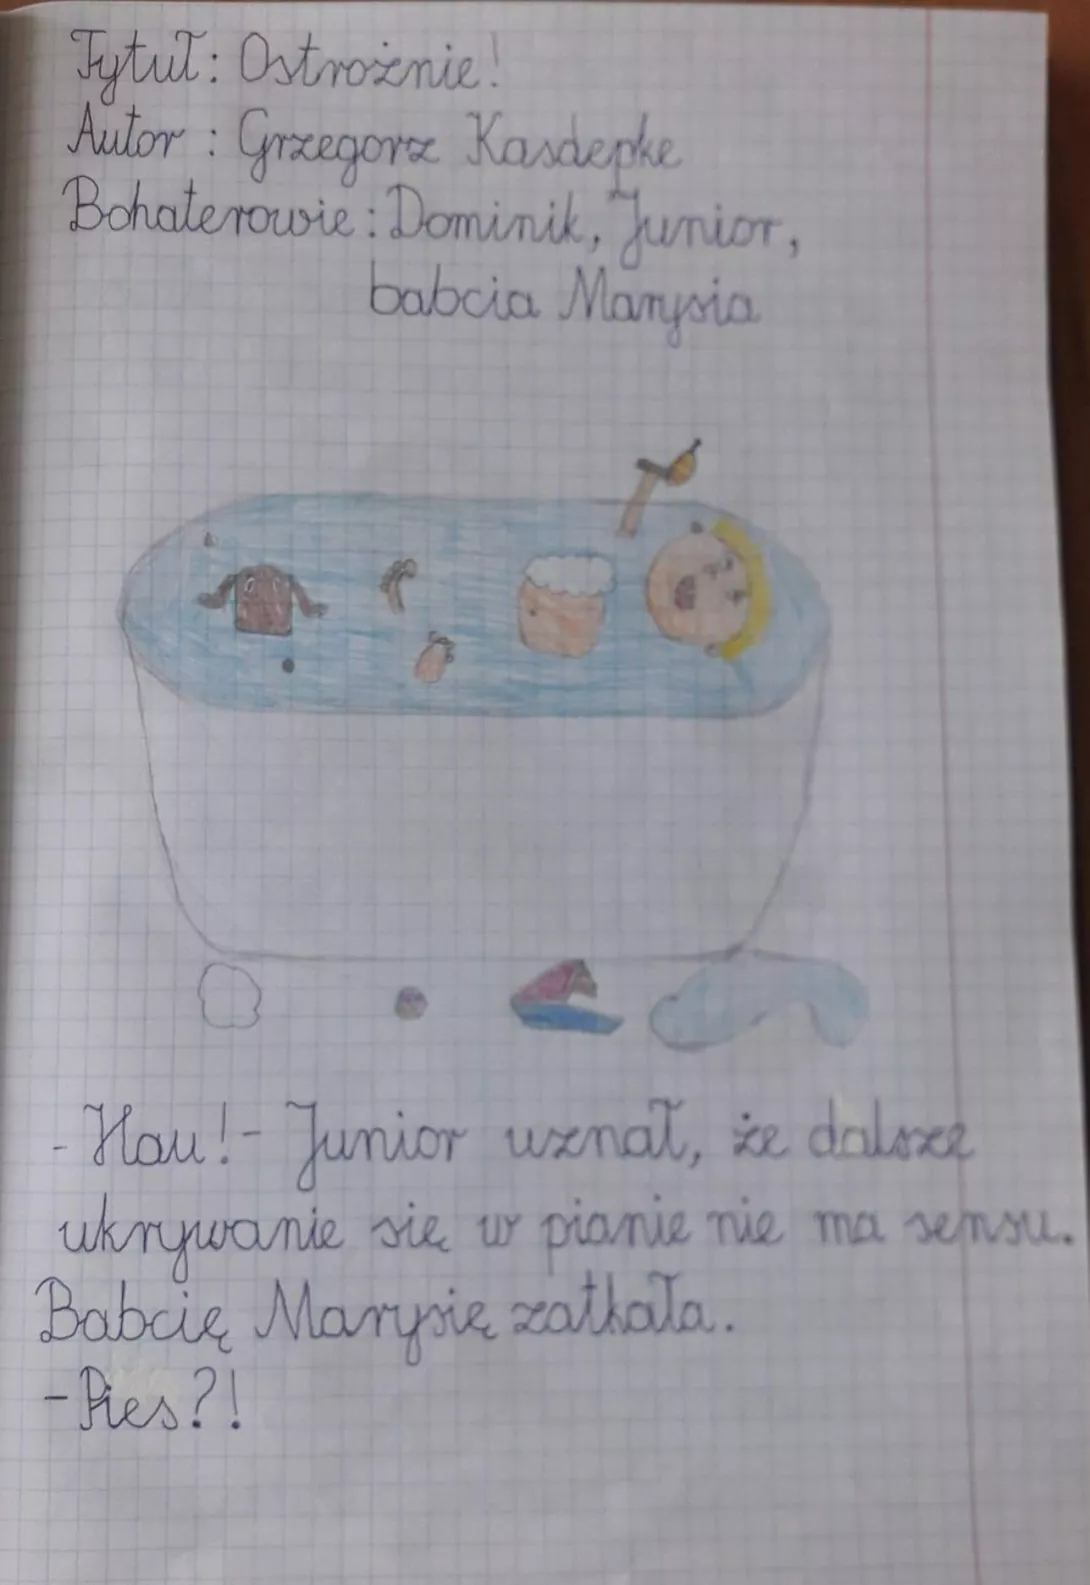 Tytuł: Ostrożnie!
Autor : Grzegorz Kasdepke
Bohaterowie: Dominik, Junior,
babcia Marysia
- Hau! - Junior uznał, że dalsze
ukrywanie się w pianie nie ma sensu.
Babcię Marysię zatkała.
- Pies?!